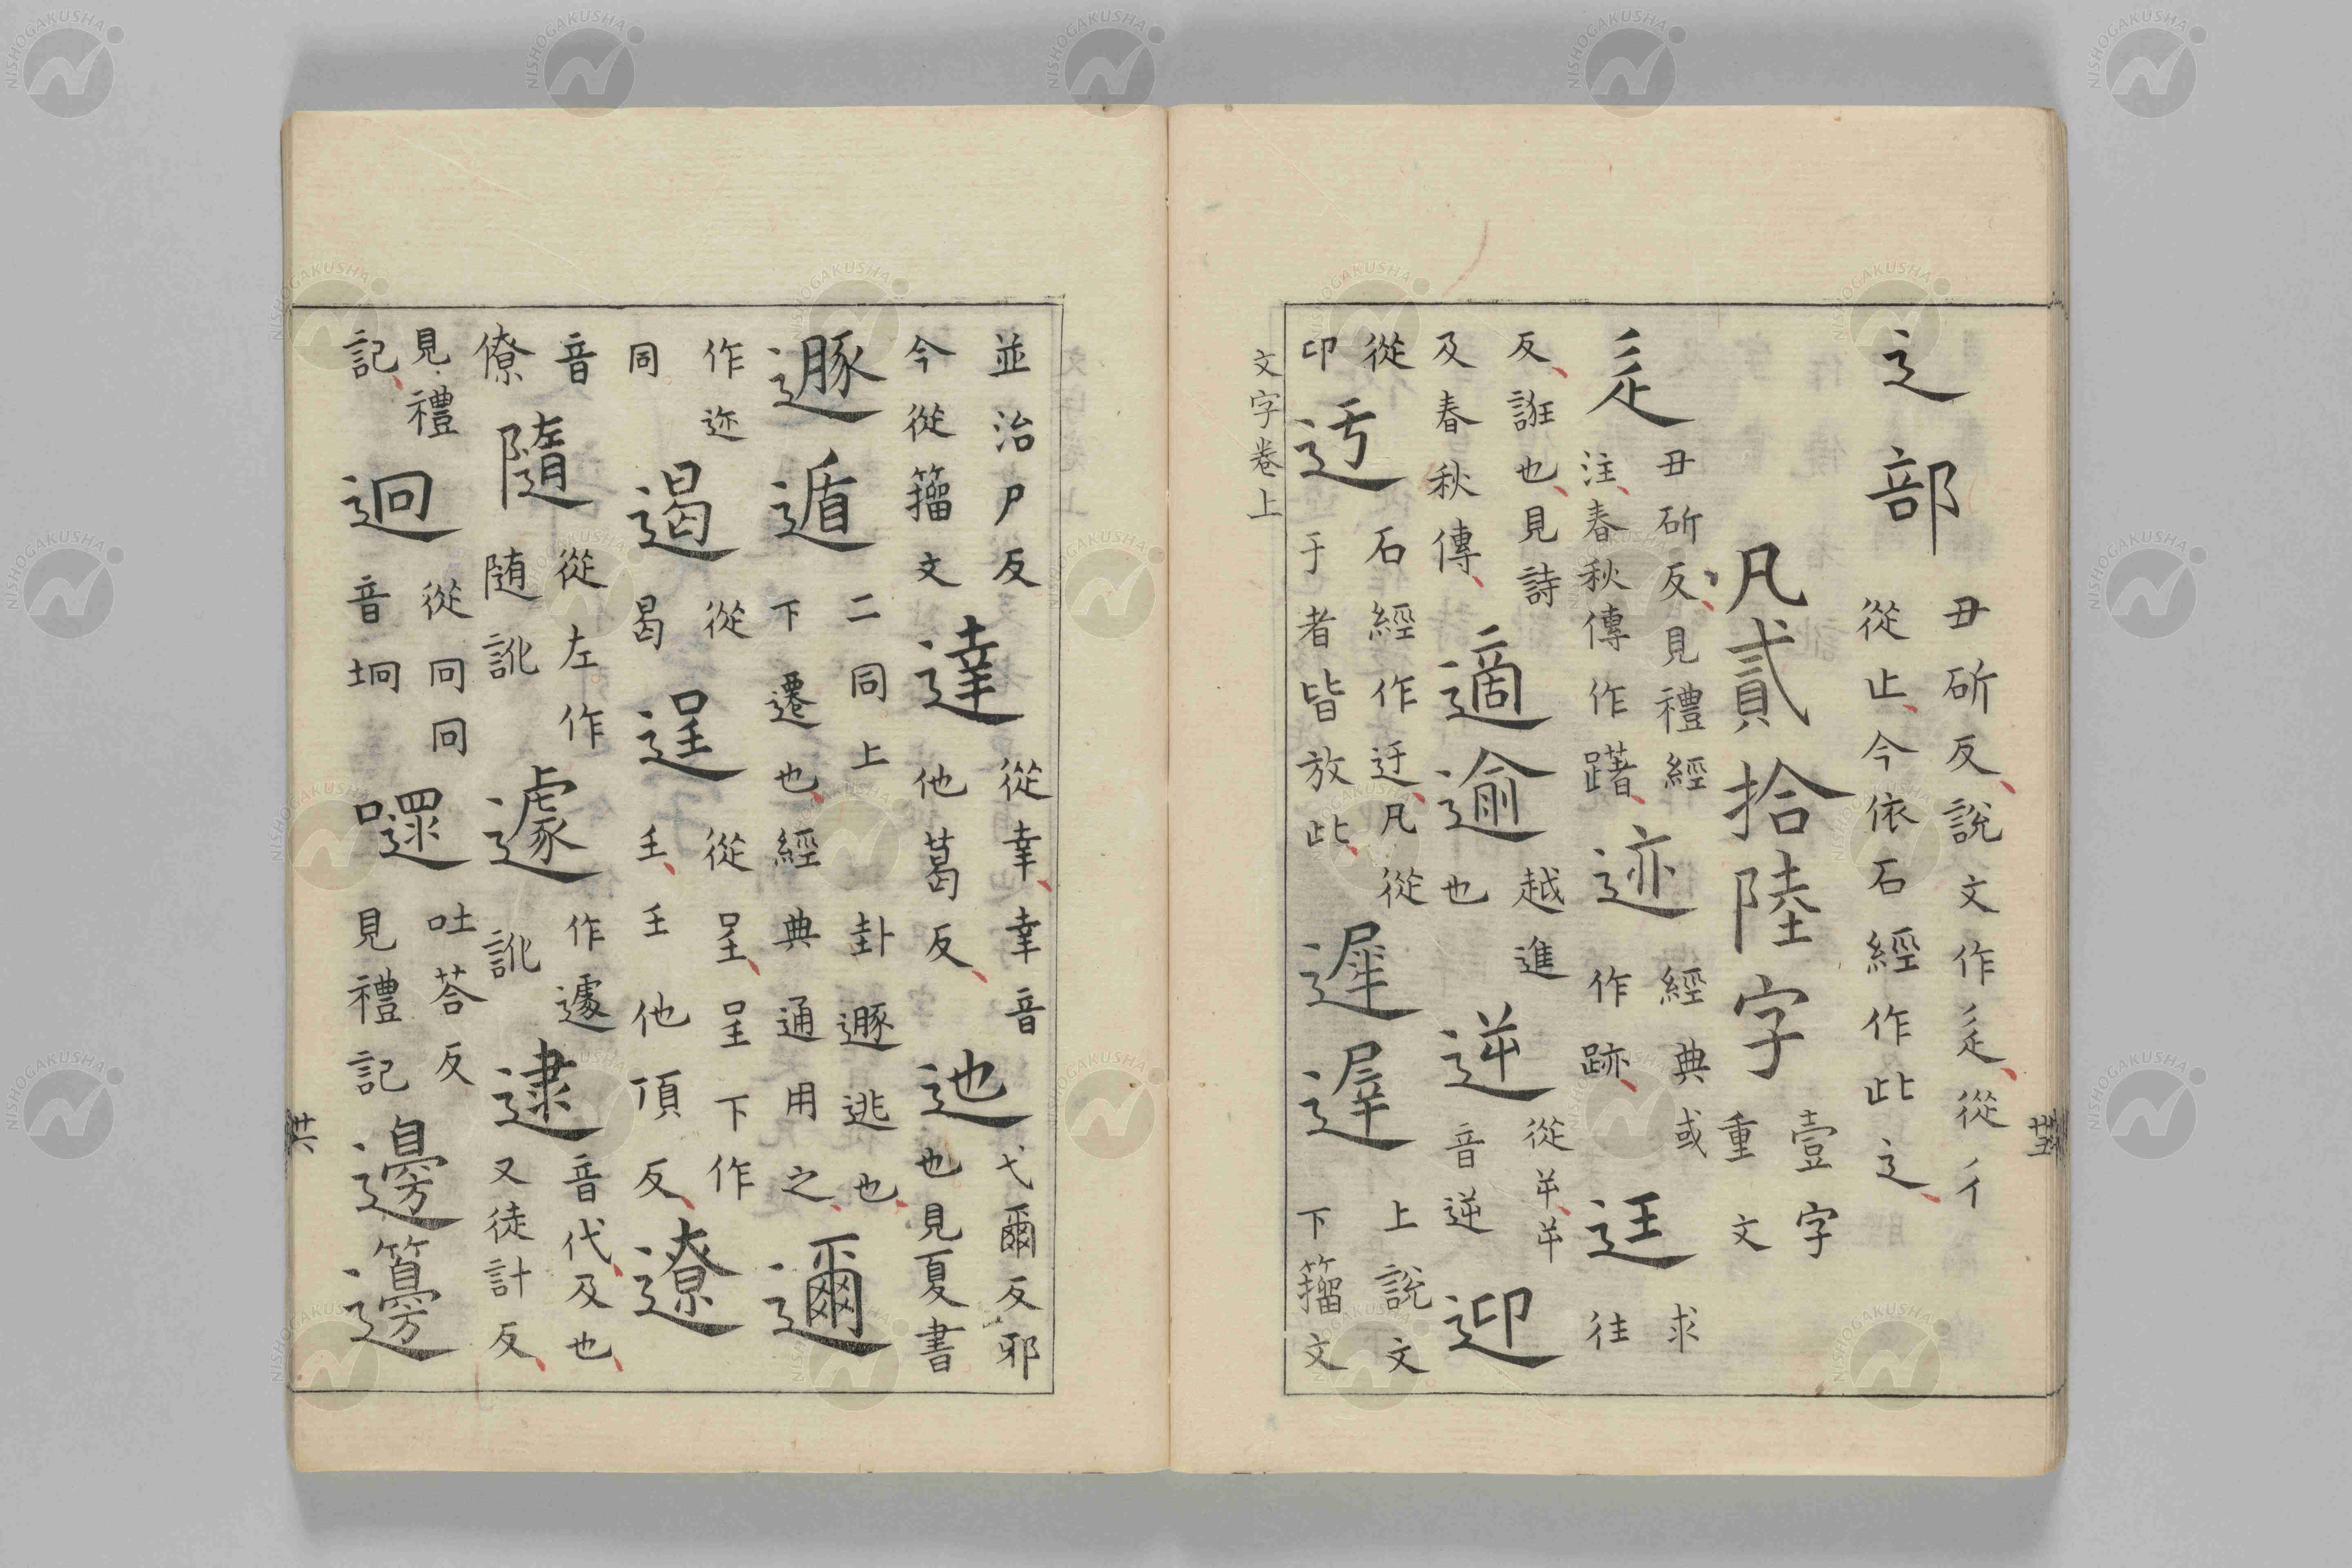 辶部 丑斫反說文作辵從彳
從止今依石經作此辶
凡貳拾陸字 壹字
重文
辵 丑斫反見禮經
注春秋傳作躇
迹 經典或
作跡
迋 求
往
反誑也見詩
及春秋傳
適逾 越進
也
逆 從屰屰
音逆
迎
從石經作迂凡從
印
迃
于者皆放此
遲遟 上說文
下籀文
文字卷上
並治尸反
今從籀文
達 從幸幸音
他葛反
迆 弋爾反邪
也見夏書
遯遁 二同上卦遯逃也
下遷也經典通用之
邇
作迩
同
遏 從
曷
逞 從呈呈下作
𡈼𡈼他頂反
遼
音
僚
隨 從左作
随訛
遽 作遽
訛
逮 音代及也
又徒計反
見禮
記
迥 從冋冋
音坰
嚃 吐荅反
見禮記
邊籩